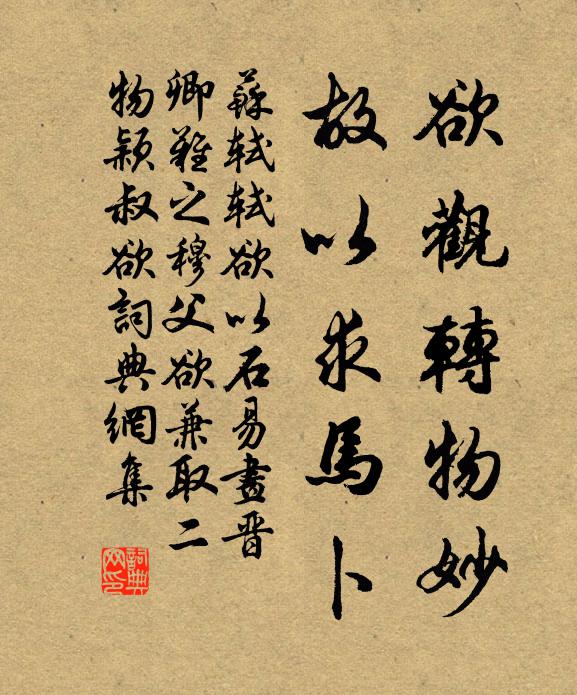 欲觀轉物妙
故以求馬卜
蘇軾軾欲以石易畫晋
卿難之穆父欲兼取二
物穎叔欲詞典網集
詞典网印